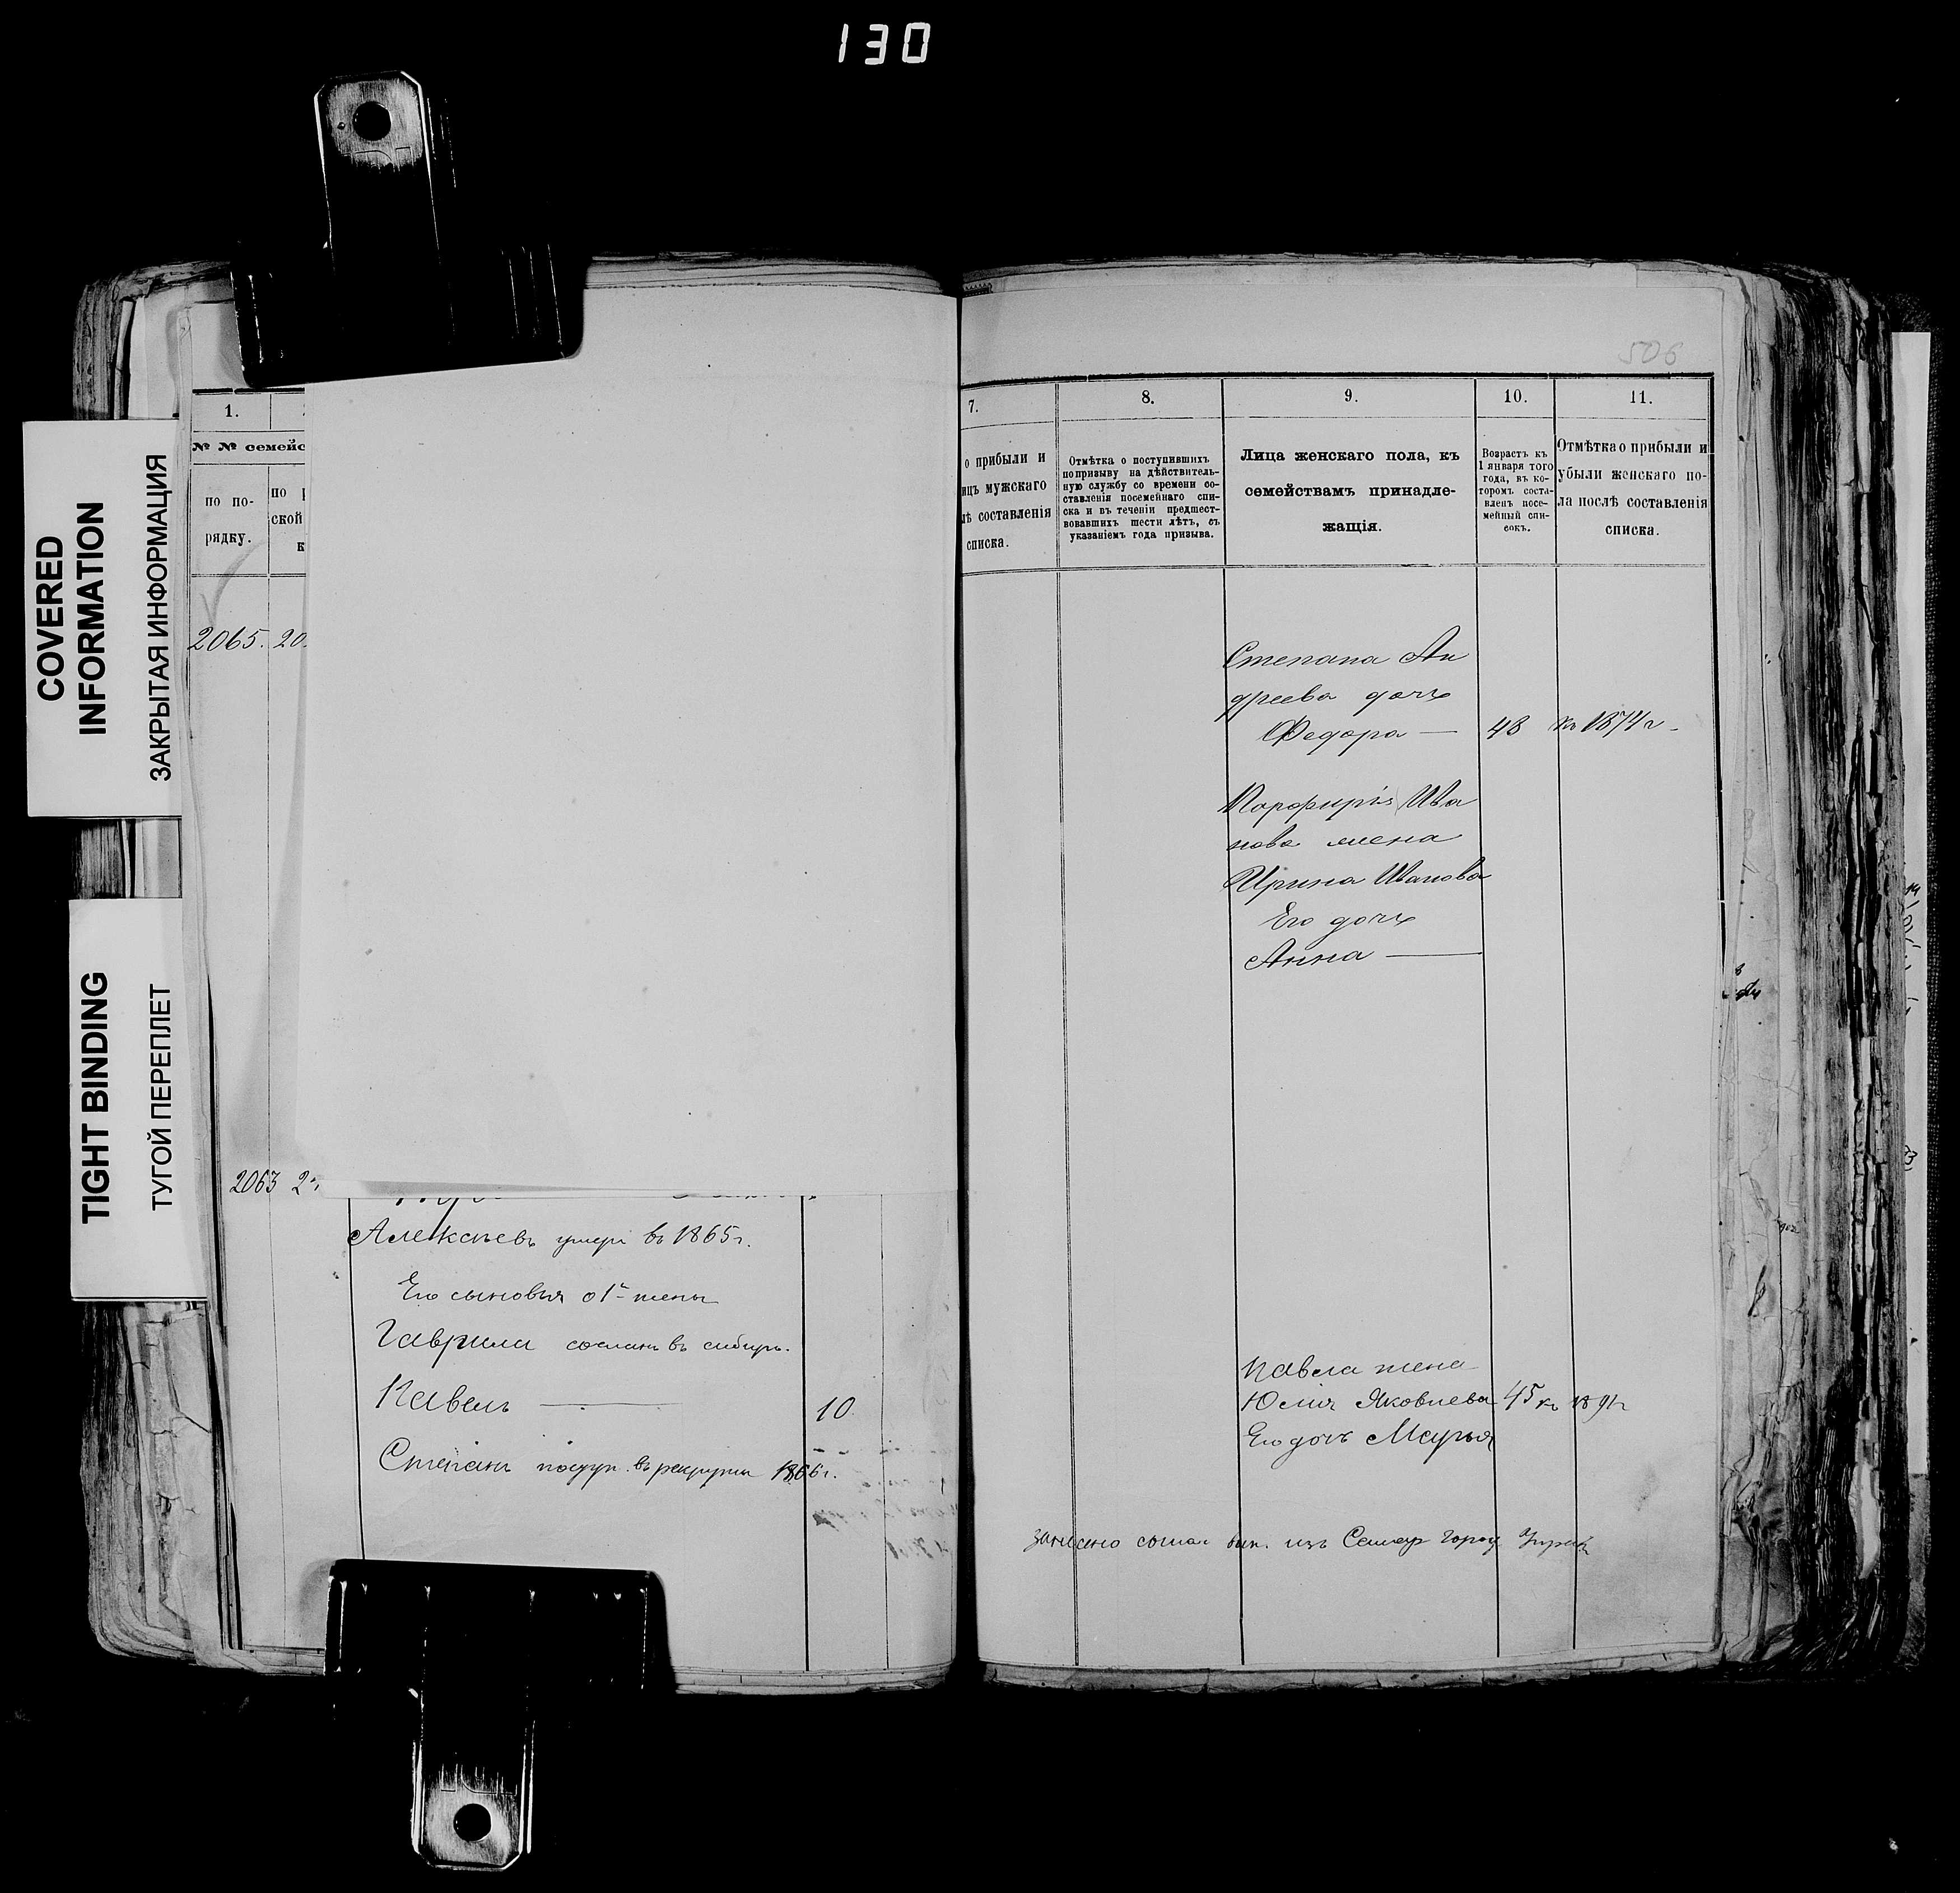 130
COVERED
INFORMATION
ЗАКРЫТАЯ ИНФОРМАЦИЯ
TIGHT BINDING
ТУГОЙ ПЕРЕПЛЕТ
1.
№ № семейс
по по-
рядку.
по р
ской
к
2065. 20.
2063
Алексѣевъ умеръ въ 1865 г.
Его сыновья от 1 жены
Гаврила сосланъ въ сибирь.
Павелъ — 10
Степанъ поступ. въ рекруты 1866 г.
506
7.
8.
9.
10.
11.
о прибыли и
ицъ мужскаго
лѣ составленія
списка.
Отмѣтка о поступившихъ
по призыву на дѣйствитель-
ную службу со времени со-
ставленія посемейнаго спи-
ска и въ теченіи предшест-
вовавшихъ шести лѣтъ, съ
указаніемъ года призыва.
Лица женскаго пола, къ
семействамъ принадле-
жащія.
Возрастъ къ
1 января того
года, въ ко-
торомъ соста-
вленъ посе-
мейный спи-
сокъ.
Отмѣтка о прибыли и
убыли женскаго по-
ла послѣ составленія
списка.
Степана Ан
дреева дочь
Федора — 48 къ 1874 г.
Порфирія Ива
нова жена
Ирина Иванова
Его дочь
Анна —
Павла жена
Юлія Яковлева 45 къ 1891 г
Его дочь Марья
занесено изъ